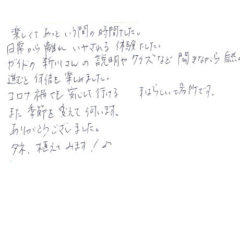 楽しくて あっという間の時間でした。
日常から離れ いやされる体験でした。
ガイドの 新川さんの 説明や クイズなど 聞きながら 自然の
道を 何倍も 楽しめました。
コロナ禍でも 安心して行ける すばらしい場所です。
また 季節を 変えて 伺います。
ありがとうございました。
タネ、植えてみます！♪